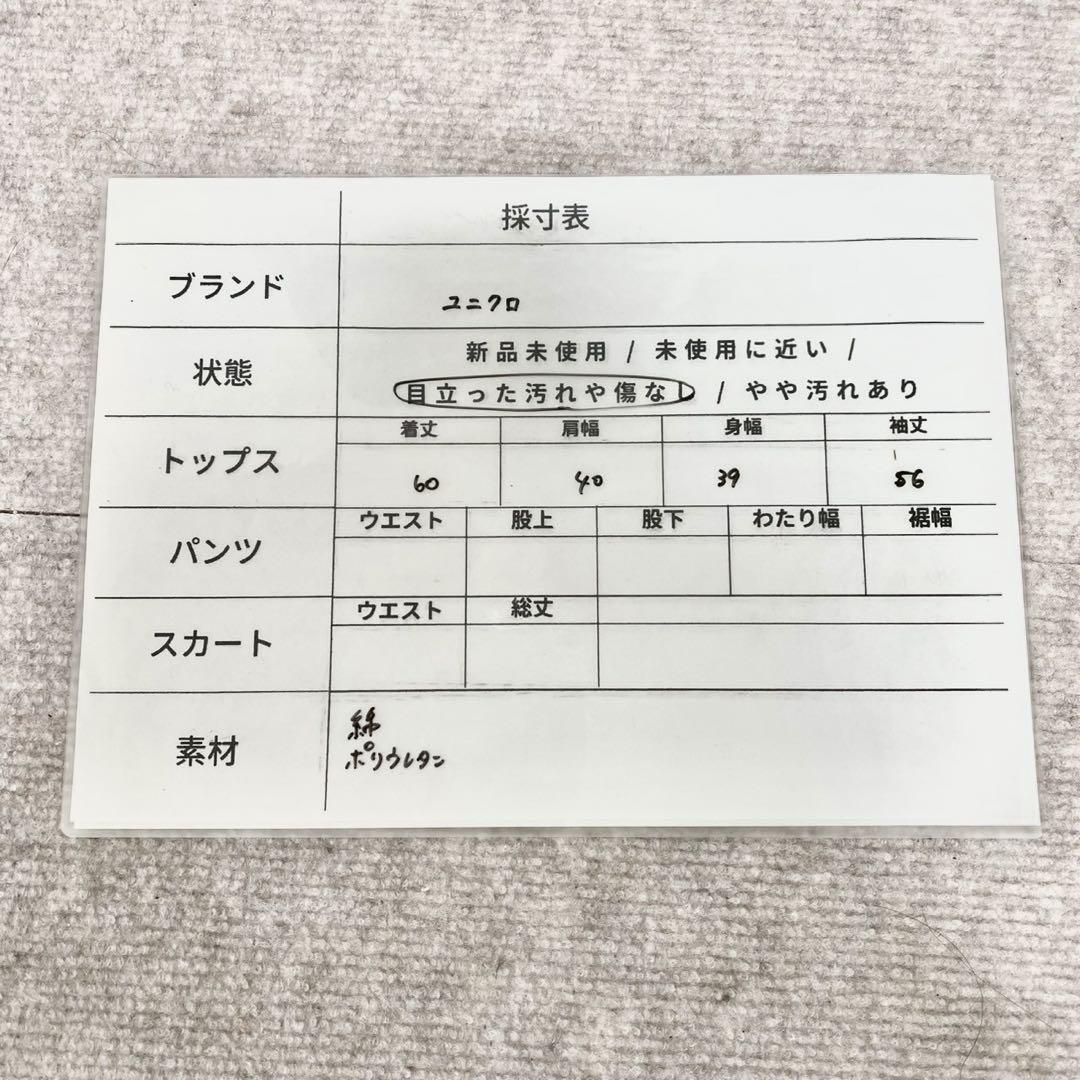 採寸表
ブランド
ユニクロ
状態
新品未使用 / 未使用に近い /
目立った汚れや傷なし / やや汚れあり
トップス
着丈 肩幅 身幅 袖丈
60 40 39 56
パンツ
ウエスト 股上 股下 わたり幅 裾幅
スカート
ウエスト 総丈
素材
綿
ポリウレタン